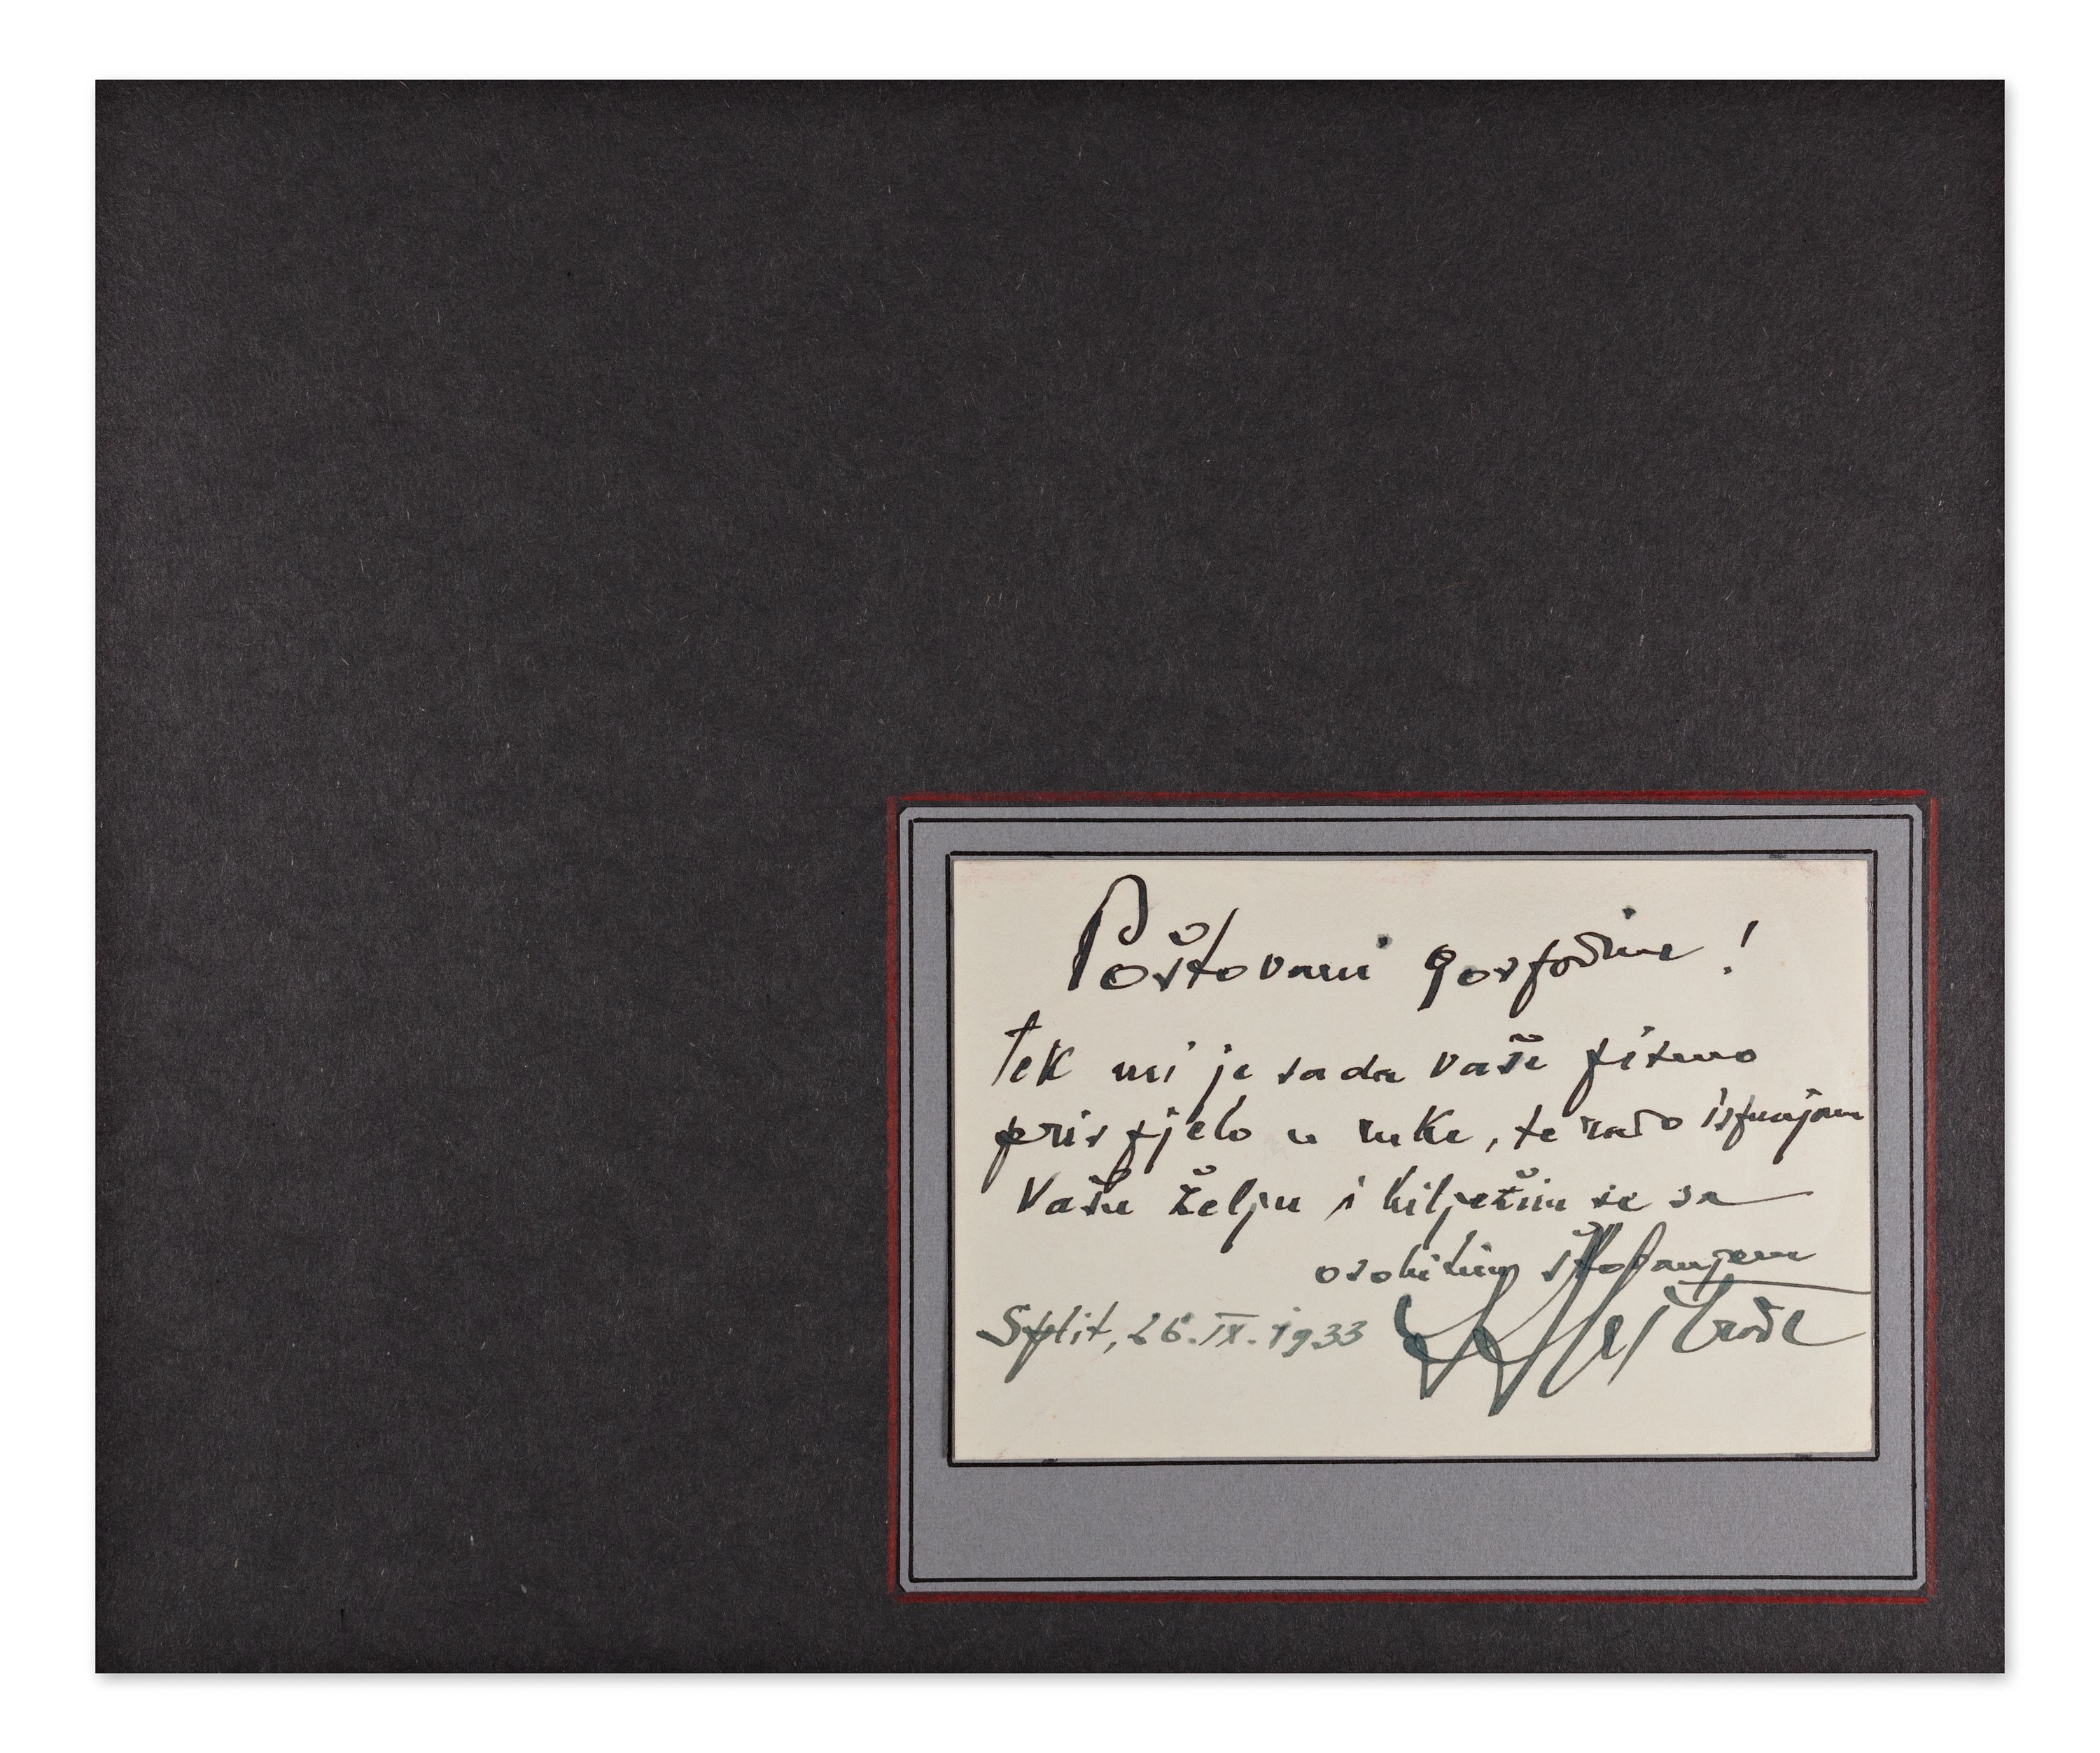 Poštovani gospodine!
Tek mi je sada Vaše pismo
prispjelo u ruke, te rado ispunjam
Vašu želju i bilježim se sa
osobitim štovanjem
Split, 26.IX.1933 Meštrović